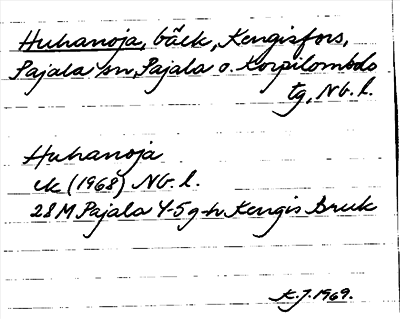 Huhanoja, bäck, Kengisfors,
Pajala sn, Pajala o. Korpilombolo
tg, Nb. l.
Huhanoja
ek (1968) Nb. l.
28 M Pajala 4-5 g-h Kengis Bruk
K.J. 1969.